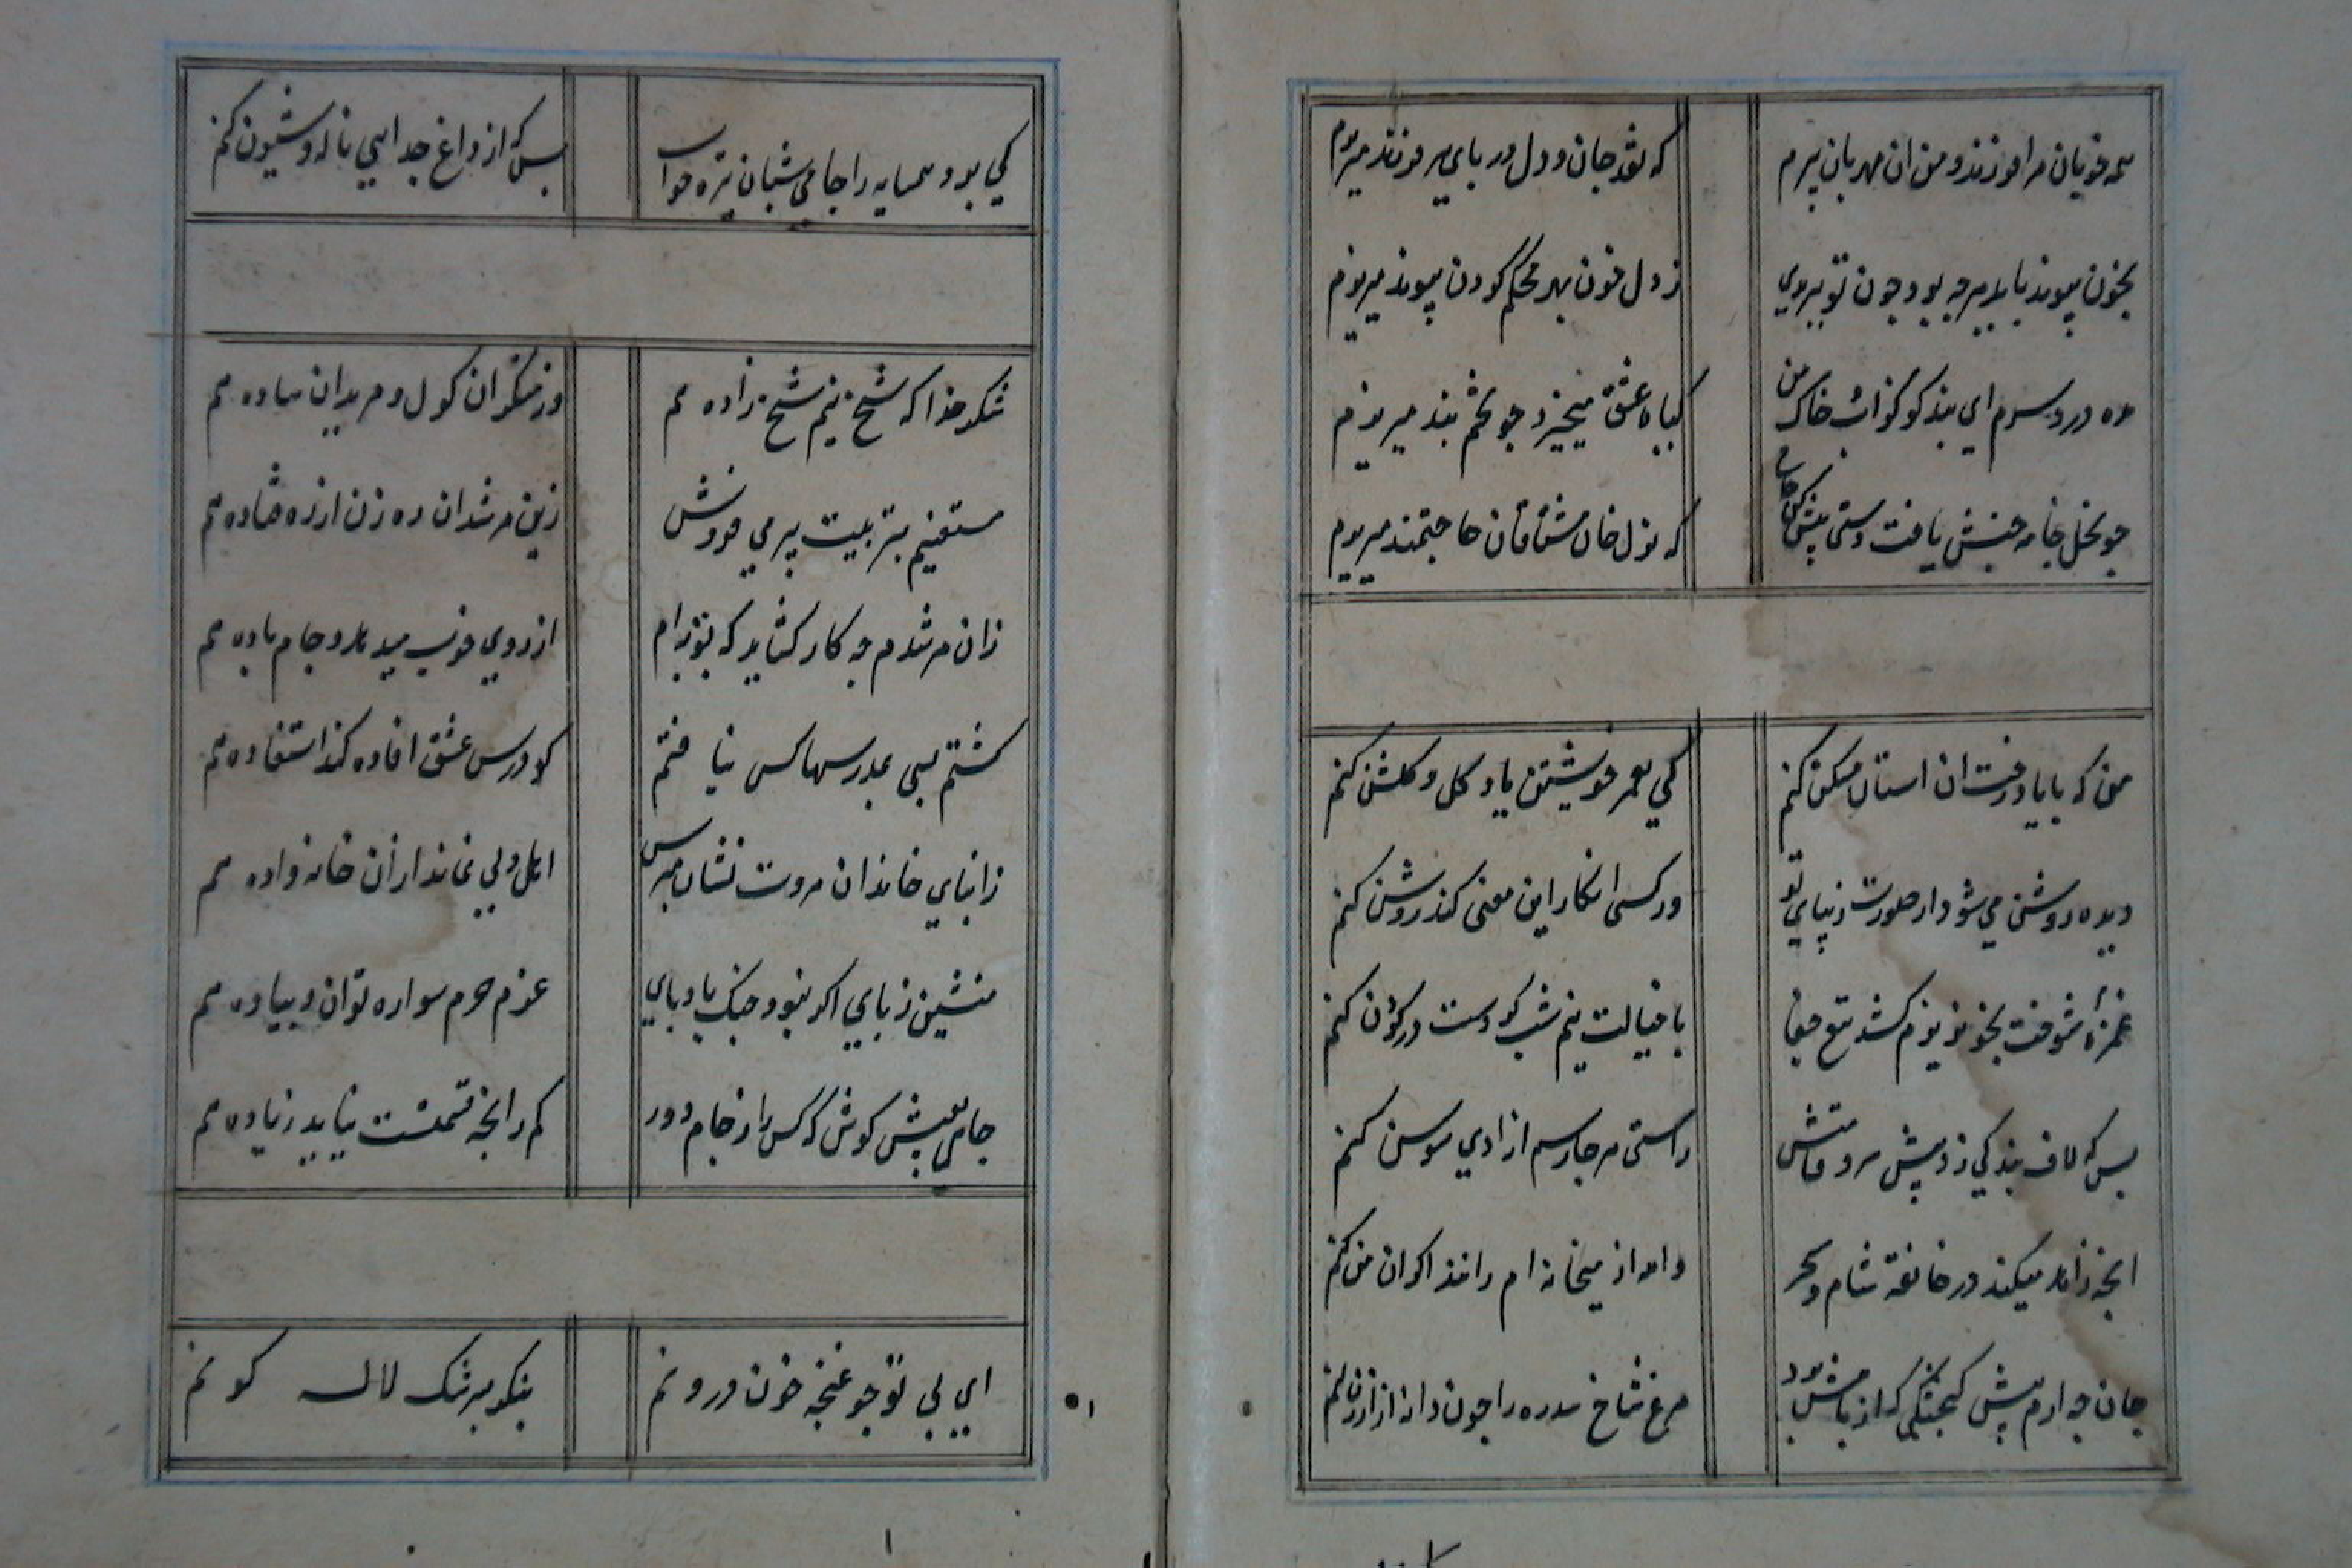 همه خوبان مرا فرزند و من ان مهربان پیرم که نقد جان و دل در پای هر فرزند میریزم
بخون پیوند باید هرچه بود چون تو ببریدی ز دل خون بهر محکم کردن پیوند میریزم
مده دردسرم ای پندکو کز اب خاک من کیاه عشق میخیزد چو تخم پند میریزم
چو نخل خامه جنبش یافت دستی پیش کن جامی که نزل خان مشتاقان حاجتمند میریزم
من که با یاد رخت ان استان مسکن کنم کی بعمر خویشتن یاد کل و کلشن کنم
دیده روشن می شود از صورت زیبای تو ور کسی انکار این معنی کند روشن کنم
غمزه شوخت بخونریزم کشد تیغ جفا با خیالت نیم شب کر دست در کردن کنم
بس که لاف بندکی زد پیش سرو قامتش راستی هرجا رسم ازادی سوسن کنم
انچه زاهد میکند در خانقه شام و سحر والله از میخانه ام رانند اکر ان من کنم
جان چه ارم پیش کنجشکی که از بامش بود مرغ شاخ سدره را چون دانه از ارزن کنم
کی بود همسایه را جامی شبان تیره خواب بس که از داغ جدایی ناله و شیون کنم
شکر خدا که شیخ نیم شیخ زاده هم وز منکران کول و مریدان ساده هم
مستغنیم بتربیت پیر می فروش زین مرشدان ره زن از ره فتاده هم
زان مرشدم چه کار کشاید که توبه ام از روی خوب میدهد و جام باده هم
کشتم بسی بمدرسها کس نیافتم کو درس عشق افاده کند استفاده هم
ز ابنای خاندان مروت نشان مپرس اهل دلی نماند ازان خانه واده هم
منشین ز پای اکر نبود خنک بادپای عزم حرم سواره توان و پیاده هم
جامی بعیش کوش که کس را ز جام دور کم زانچه قسمتست نیاید زیاده هم
ای بی تو چو غنچه خون درونم بنکر سرشک لاله کونم